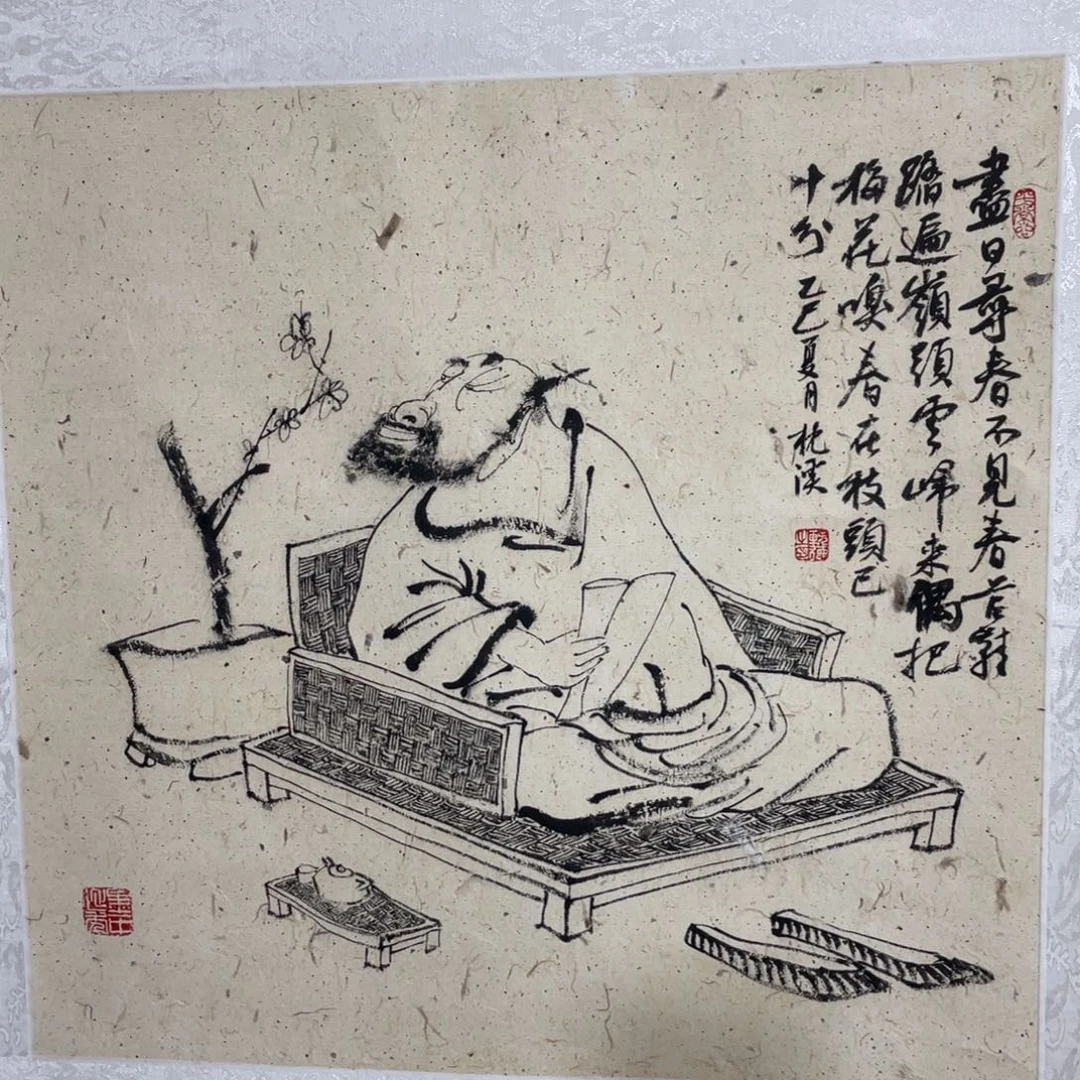 盡日尋春不見春芒鞋
踏遍嶺頭雲歸來偶把
梅花嗅春在枝頭已
十分 乙巳夏月 枕溪